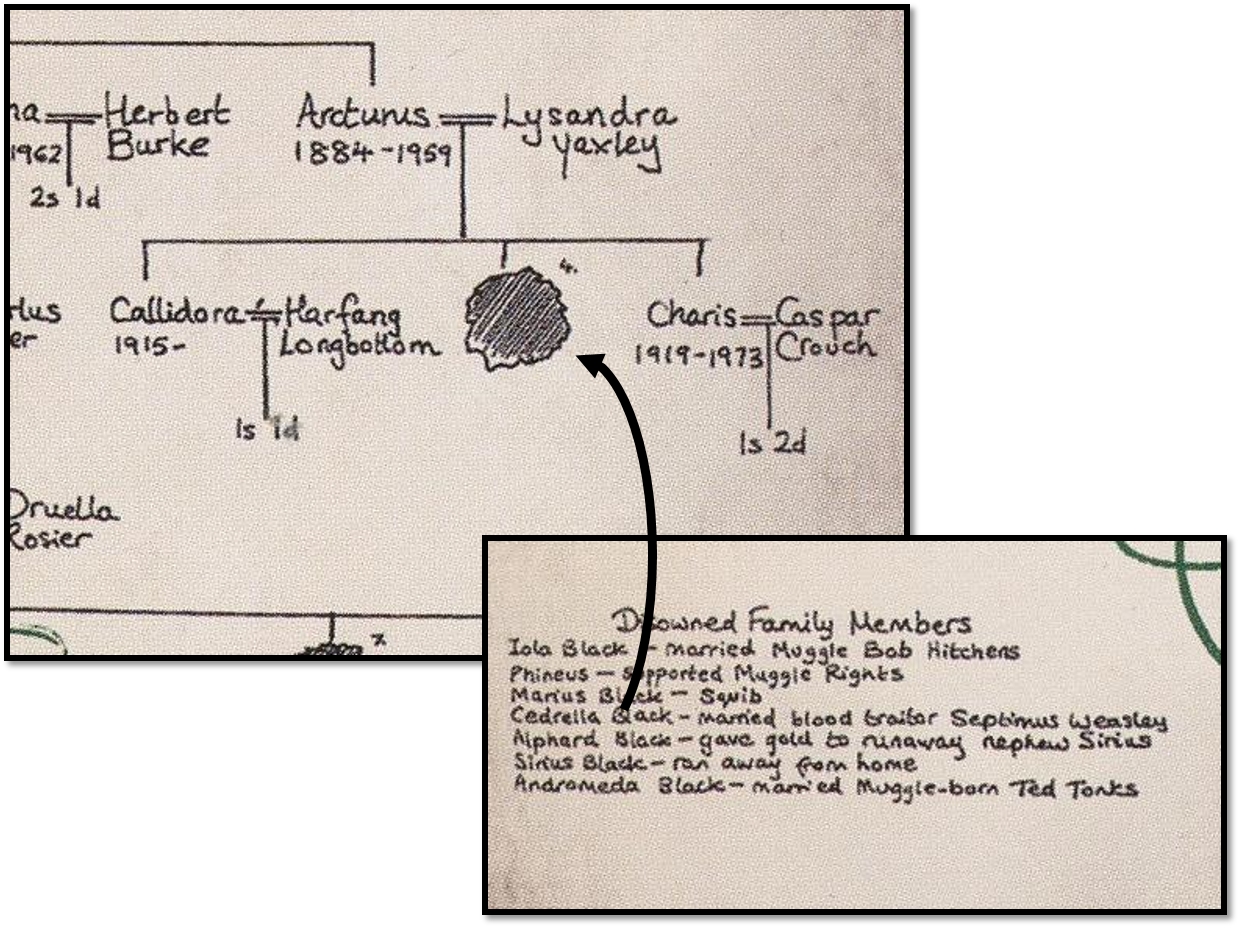 na Herbert Arcturus Lysandra
1962 Burke 1884-1959 Yaxley
2s 1d
4.
Callidora Harfang Charis Caspar
1915- Longbottom 1919-1973 Crouch
1s 1d 1s 2d
Druella
Rosier
7
Disowned Family Members
Iola Black - married Muggle Bob Hitchens
Phineus - supported Muggle Rights
Marius Black - Squib
Cedrella Black - married blood traitor Septimus Weasley
Alphard Black - gave gold to runaway nephew Sirius
Sirius Black - ran away from home
Andromeda Black - married Muggle-born Ted Tonks